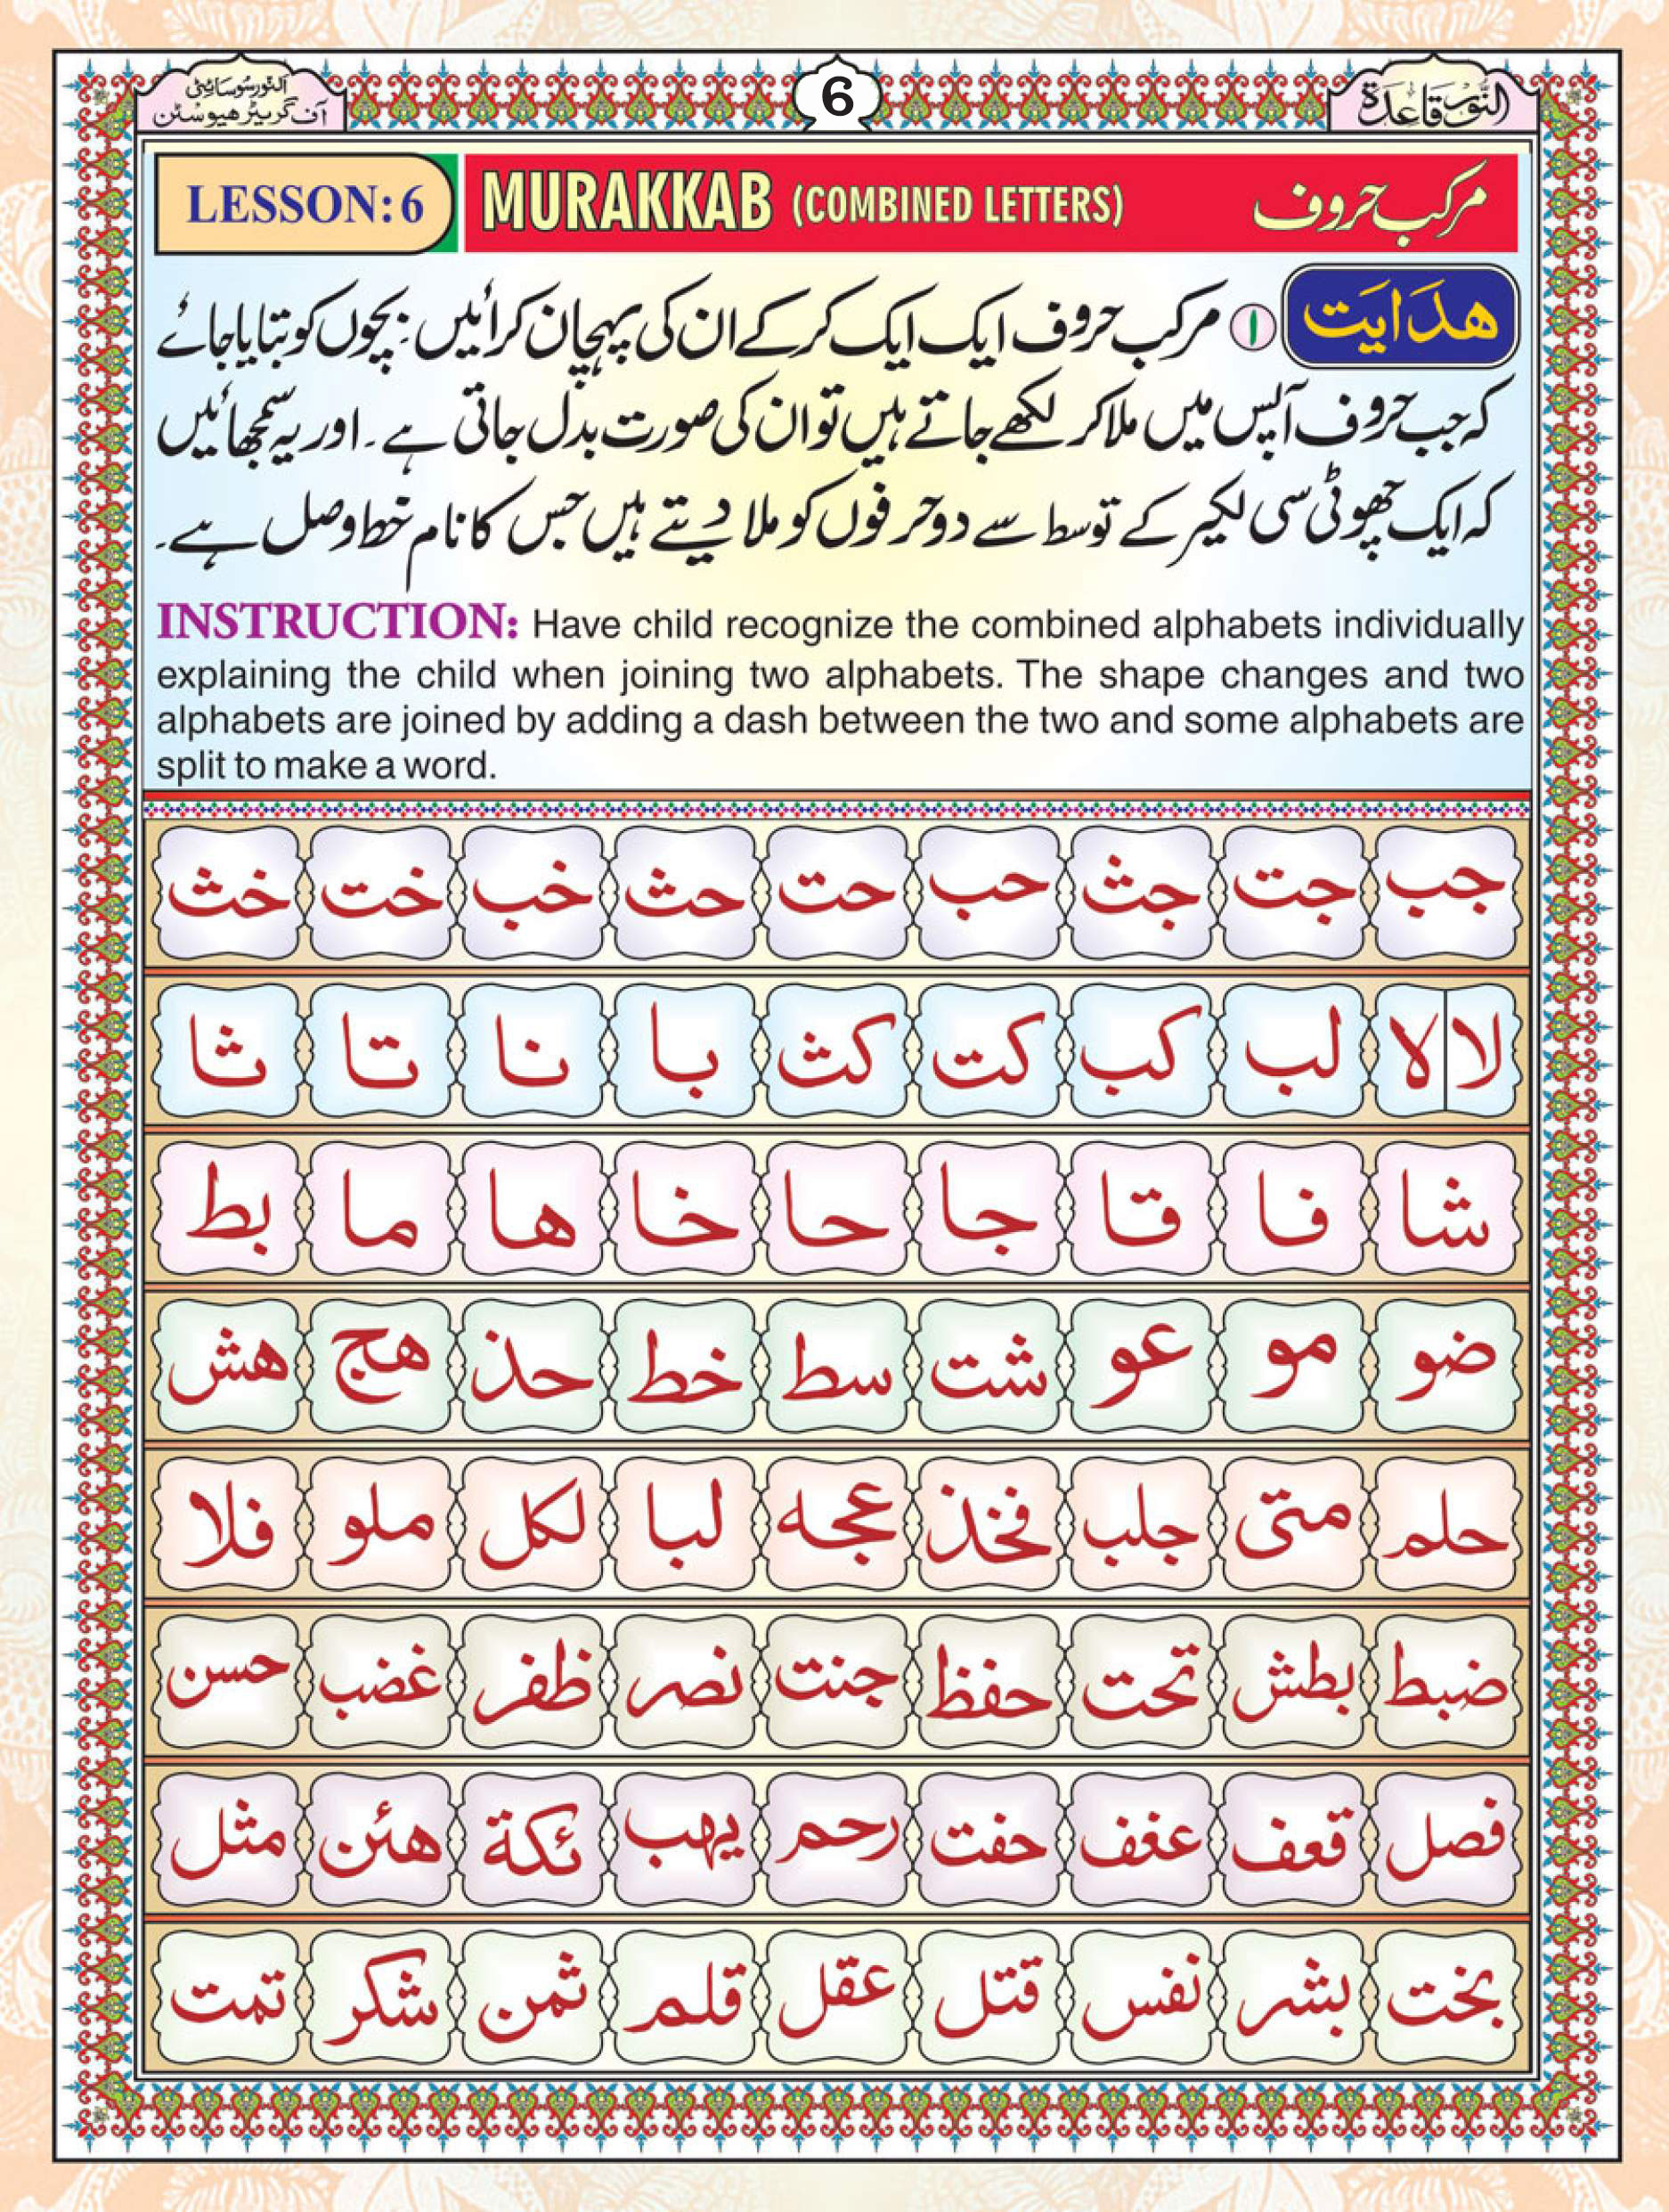 النور قاعدة
6
النور سوسائیٹی
آف گریٹر ھیوسٹن
LESSON: 6 MURAKKAB (COMBINED LETTERS) مرکب حروف
ھدایت ۱ مرکب حروف ایک ایک کر کے ان کی پہچان کرائیں: بچوں کو بتایا جائے
کہ جب حروف آپس میں ملا کر لکھے جاتے ہیں تو ان کی صورت بدل جاتی ہے۔ اور یہ سمجھائیں
کہ ایک چھوٹی سی لکیر کے توسط سے دو حرفوں کو ملا دیتے ہیں جس کا نام خط وصل ہے۔
INSTRUCTION: Have child recognize the combined alphabets individually
explaining the child when joining two alphabets. The shape changes and two
alphabets are joined by adding a dash between the two and some alphabets are
split to make a word.
جب جت جث حب حت حث خب خت خث
لا لا لب كب كت كث با نا تا ثا
شا فا قا جا حا خا ها ما بط
ضو مو عو شت سط خط حذ هج هش
حلم متى جلب فخذ عجه لبا لكل ملو فلا
ضبط بطش تحت حفظ جنت نصر ظفر غضب حسن
فصل قعف عغف حفت رحم يهب ئكة هئن مثل
بخت بشر نفس قتل عقل قلم ثمن شكر تمت